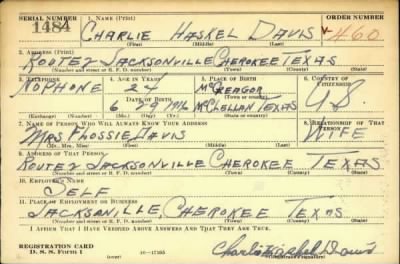 SERIAL NUMBER 1. NAME (Print) ORDER NUMBER
1484 CHARLIE HASKEL DAVIS V460
(First) (Middle) (Last)
2. ADDRESS (Print)
ROUTE 2 JACKSONVILLE CHEROKEE TEXAS
(Number and street or R. F. D. number) (Town) (County) (State)
3. TELEPHONE 4. AGE IN YEARS 5. PLACE OF BIRTH 6. COUNTRY OF CITIZENSHIP
NO PHONE 24 McGREAGOR U.S.
DATE OF BIRTH
6 29 1916 McCLELLAN TEXAS
(Exchange) (Number) (Mo.) (Day) (Yr.) (State or country)
7. NAME OF PERSON WHO WILL ALWAYS KNOW YOUR ADDRESS 8. RELATIONSHIP OF THAT PERSON
MRS FLOSSIE DAVIS WIFE
(Mr., Mrs., Miss) (First) (Middle) (Last)
9. ADDRESS OF THAT PERSON
ROUTE 2 JACKSONVILLE CHEROKEE TEXAS
(Number and street or R. F. D. number) (Town) (County) (State)
10. EMPLOYER'S NAME
SELF
11. PLACE OF EMPLOYMENT OR BUSINESS
JACKSANVILLE, CHEROKEE TEXAS
(Number and street or R. F. D. number) (Town) (County) (State)
I AFFIRM THAT I HAVE VERIFIED ABOVE ANSWERS AND THAT THEY ARE TRUE.
REGISTRATION CARD
D. S. S. FORM 1 (over) 16—17105 Charlie Haskel Davis
(Registrant's signature)